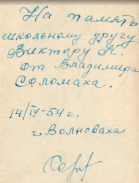 На память
школьному другу
Виктору К.
от Владимира
Соломаха.
14/IV-54 г.
г. Волноваха